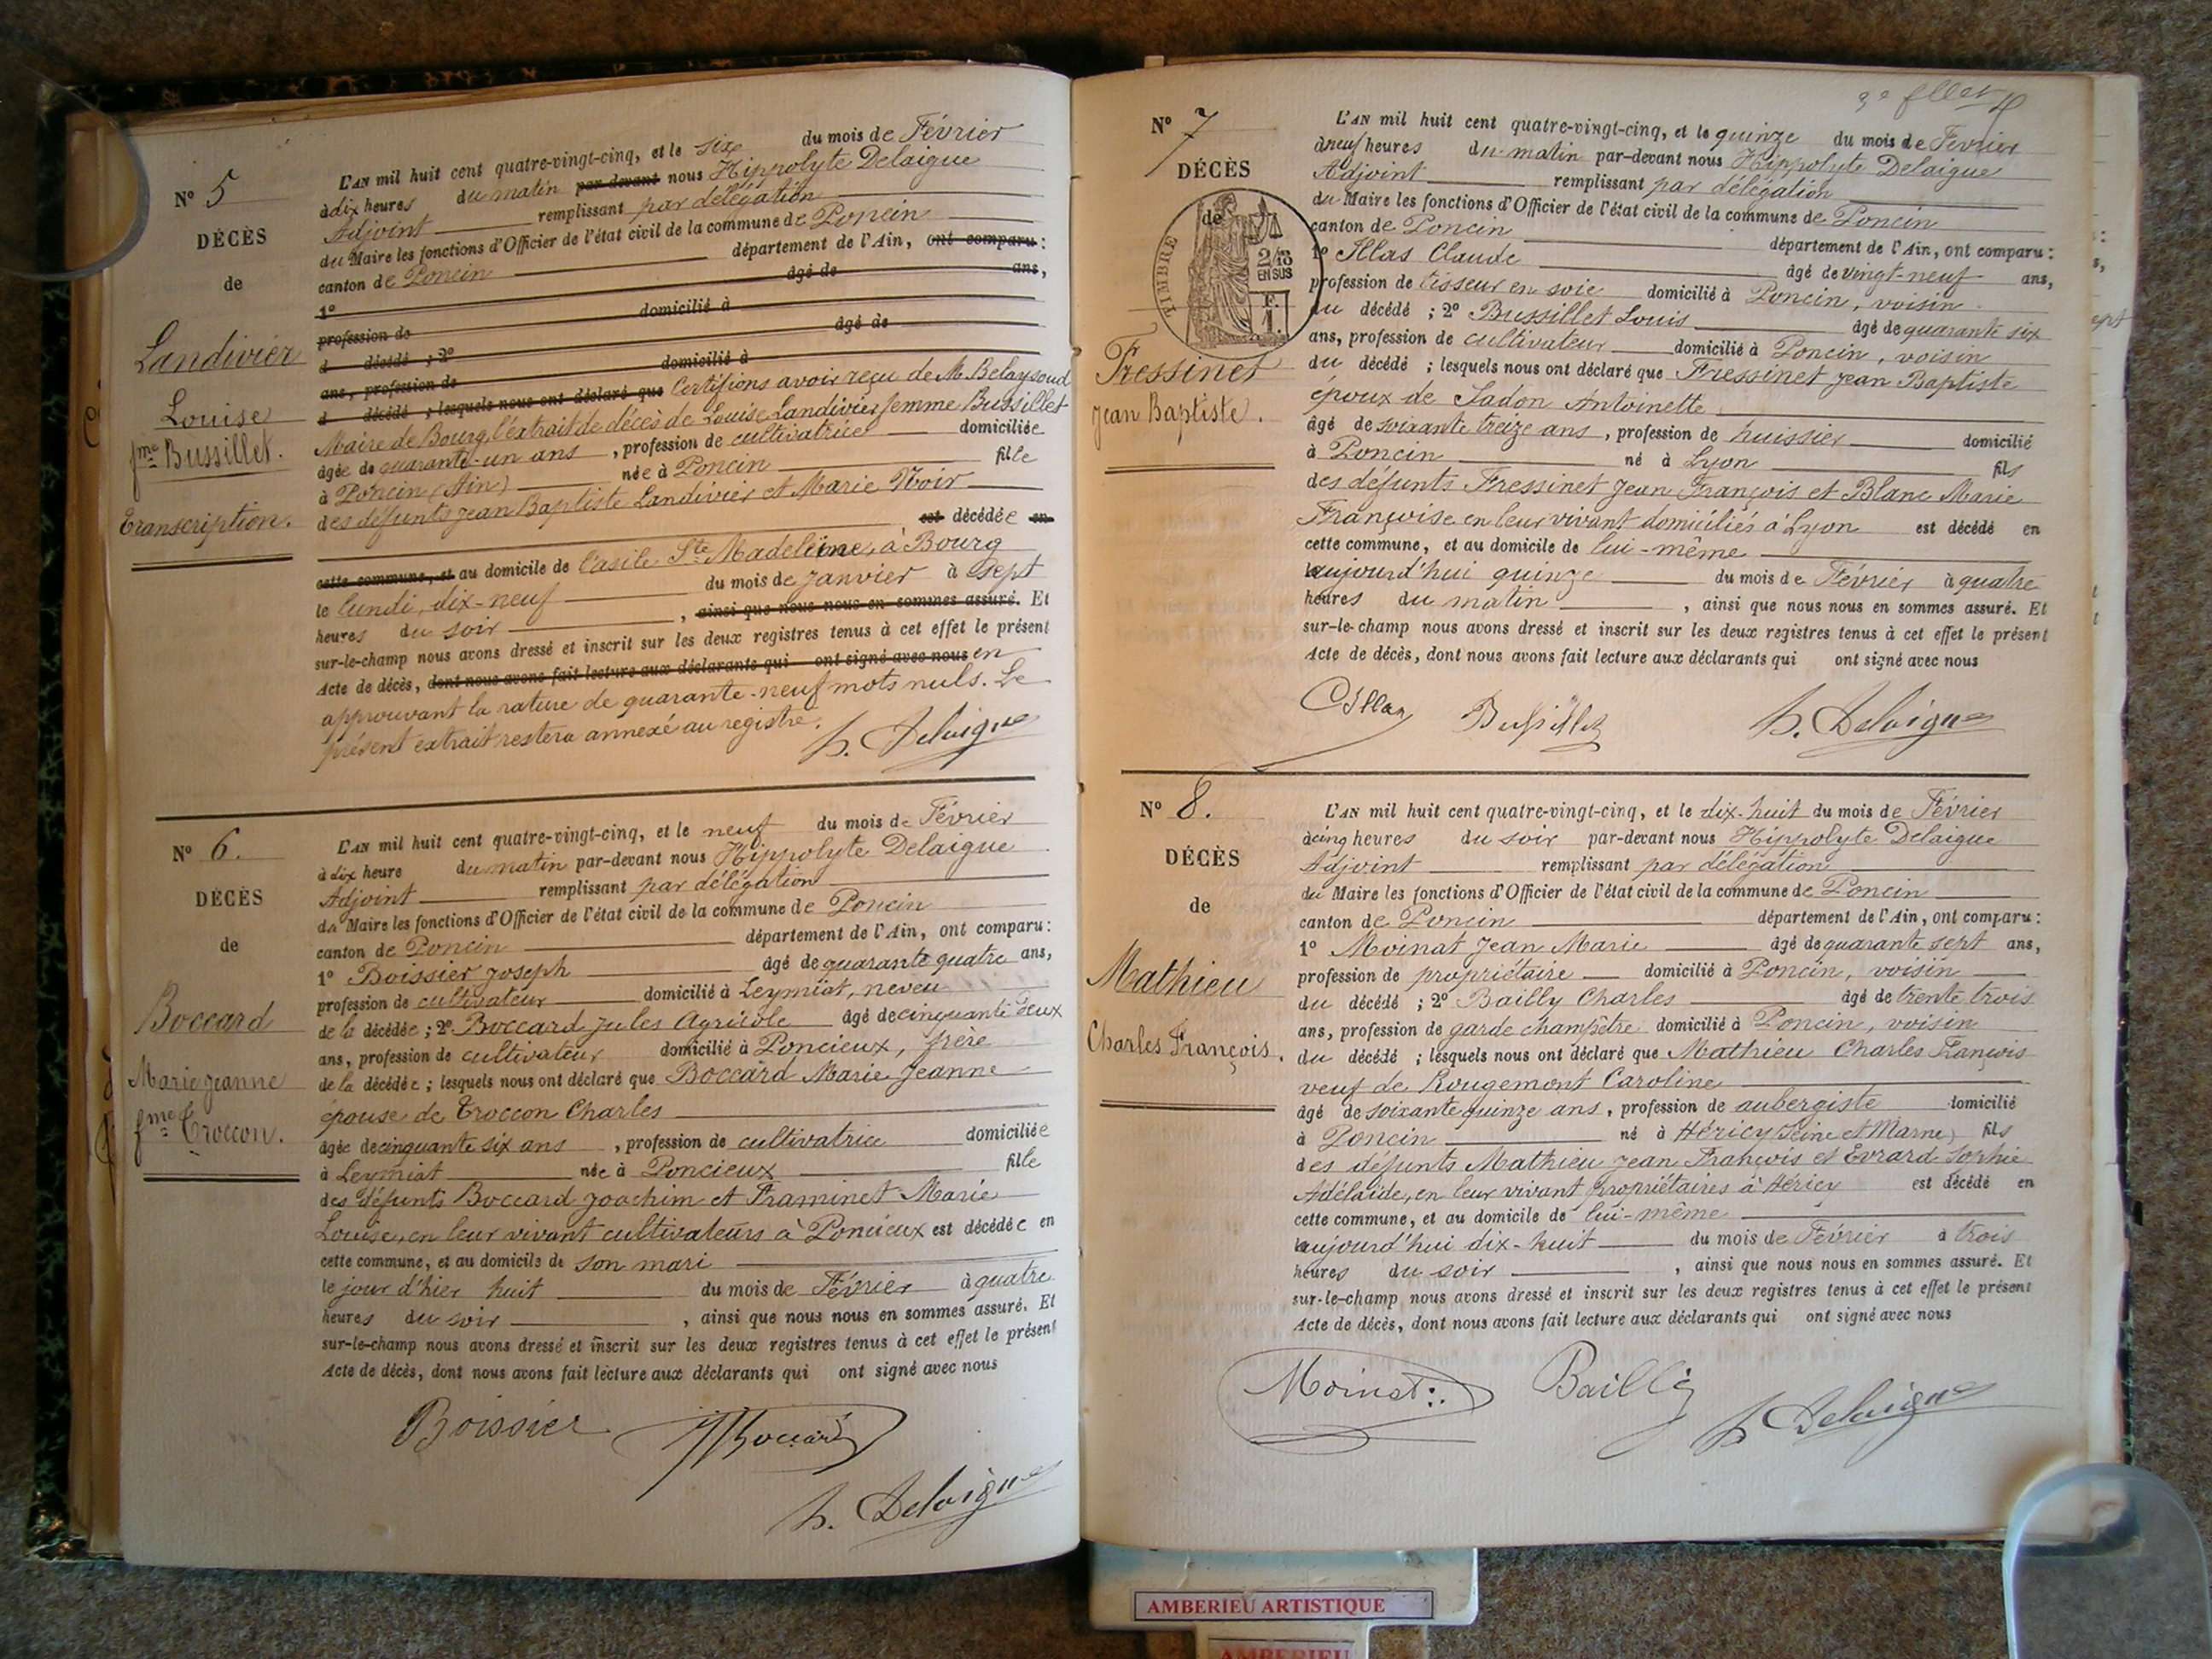 Nº 5
DÉCÈS
de
Landivier
Louise
fme Bussillet.
Transcription.
L'AN mil huit cent quatre-vingt-cinq, et le six du mois de Février
à dix heures du matin par-devant nous Hippolyte Delaigue
Adjoint remplissant par délégation
du Maire les fonctions d'Officier de l'état civil de la commune de Poncin
canton de Poncin département de l'Ain, ont comparu :
1º âgé de ans,
profession de domicilié à
d décédé ; 2º âgé de
ans, profession de domicilié à
d décédé ; lesquels nous ont déclaré que Certifions avoir reçu de M. Belaysoud
Maire de Bourg, l'extrait de décès de Louise Landivier femme Bussillet
âgée de quarante-un ans, profession de cultivatrice domiciliée
à Poncin (Ain) née à Poncin fille
des défunts Jean Baptiste Landivier et Marie Noir
est décédée en
cette commune, et au domicile de l'asile Ste Madeleine, à Bourg
le lundi, dix-neuf du mois de Janvier à sept
heures du soir , ainsi que nous nous en sommes assuré. Et
sur-le-champ nous avons dressé et inscrit sur les deux registres tenus à cet effet le présent
Acte de décès, dont nous avons fait lecture aux déclarants qui ont signé avec nous en
approuvant la rature de quarante-neuf mots nuls. Le
présent extrait restera annexé au registre.
h. Delaigue
Nº 6.
DÉCÈS
de
Boccard
Marie Jeanne
fme Troccon.
L'AN mil huit cent quatre-vingt-cinq, et le neuf du mois de Février
à dix heure du matin par-devant nous Hippolyte Delaigue
Adjoint remplissant par délégation
du Maire les fonctions d'Officier de l'état civil de la commune de Poncin
canton de Poncin département de l'Ain, ont comparu :
1º Boissier Joseph âgé de quarante quatre ans,
profession de cultivateur domicilié à Leymiat, neveu
de la décédée ; 2º Boccard Jules Agricole âgé de cinquante deux
ans, profession de cultivateur domicilié à Poncieux, frère
de la décédée ; lesquels nous ont déclaré que Boccard Marie Jeanne
épouse de Troccon Charles
âgée de cinquante six ans , profession de cultivatrice domiciliée
à Leymiat née à Poncieux fille
des défunts Boccard Joachim et Framinet Marie
Louise, en leur vivant cultivateurs à Poncieux est décédée en
cette commune, et au domicile de son mari
le jour d'hier huit du mois de Février à quatre
heures du soir , ainsi que nous nous en sommes assuré. Et
sur-le-champ nous avons dressé et inscrit sur les deux registres tenus à cet effet le présent
Acte de décès, dont nous avons fait lecture aux déclarants qui ont signé avec nous
Boissier Boccard
h. Delaigue
3e fllet
Nº 7
DÉCÈS
de
TIMBRE
2/10
EN SUS
F.
1.
Fressinet
Jean Baptiste.
L'AN mil huit cent quatre-vingt-cinq, et le quinze du mois de Février
à neuf heures du matin par-devant nous Hippolyte Delaigue
Adjoint remplissant par délégation
du Maire les fonctions d'Officier de l'état civil de la commune de Poncin
canton de Poncin département de l'Ain, ont comparu :
1º Illas Claude âgé de vingt-neuf ans,
profession de tisseur en soie domicilié à Poncin, voisin
du décédé ; 2º Bussillet Louis âgé de quarante six
ans, profession de cultivateur domicilié à Poncin, voisin
du décédé ; lesquels nous ont déclaré que Fressinet Jean Baptiste
époux de Jadon Antoinette
âgé de soixante treize ans , profession de huissier domicilié
à Poncin né à Lyon fils
des défunts Fressinet Jean François et Blanc Marie
Françoise en leur vivant domiciliés à Lyon est décédé en
cette commune, et au domicile de lui-même
aujourd'hui quinze du mois de Février à quatre
heures du matin , ainsi que nous nous en sommes assuré. Et
sur-le-champ nous avons dressé et inscrit sur les deux registres tenus à cet effet le présent
Acte de décès, dont nous avons fait lecture aux déclarants qui ont signé avec nous
C Illas Bussillet h. Delaigue
Nº 8.
DÉCÈS
de
Mathieu
Charles François.
L'AN mil huit cent quatre-vingt-cinq, et le dix-huit du mois de Février
à cinq heures du soir par-devant nous Hippolyte Delaigue
Adjoint remplissant par délégation
du Maire les fonctions d'Officier de l'état civil de la commune de Poncin
canton de Poncin département de l'Ain, ont comparu :
1º Moinat Jean Marie âgé de quarante sept ans,
profession de propriétaire domicilié à Poncin, voisin
du décédé ; 2º Bailly Charles âgé de trente trois
ans, profession de garde champêtre domicilié à Poncin, voisin
du décédé ; lesquels nous ont déclaré que Mathieu Charles François
veuf de Rougemont Caroline
âgé de soixante quinze ans , profession de aubergiste domicilié
à Poncin né à Héricy (Seine et Marne) fils
des défunts Mathieu Jean François et Evrard Sophie
Adélaïde, en leur vivant propriétaires à Héricy est décédé en
cette commune, et au domicile de lui-même
aujourd'hui dix-huit du mois de Février à trois
heures du soir , ainsi que nous nous en sommes assuré. Et
sur-le-champ nous avons dressé et inscrit sur les deux registres tenus à cet effet le présent
Acte de décès, dont nous avons fait lecture aux déclarants qui ont signé avec nous
Moinat Bailly h Delaigue
AMBERIEU ARTISTIQUE
AMBERIEU